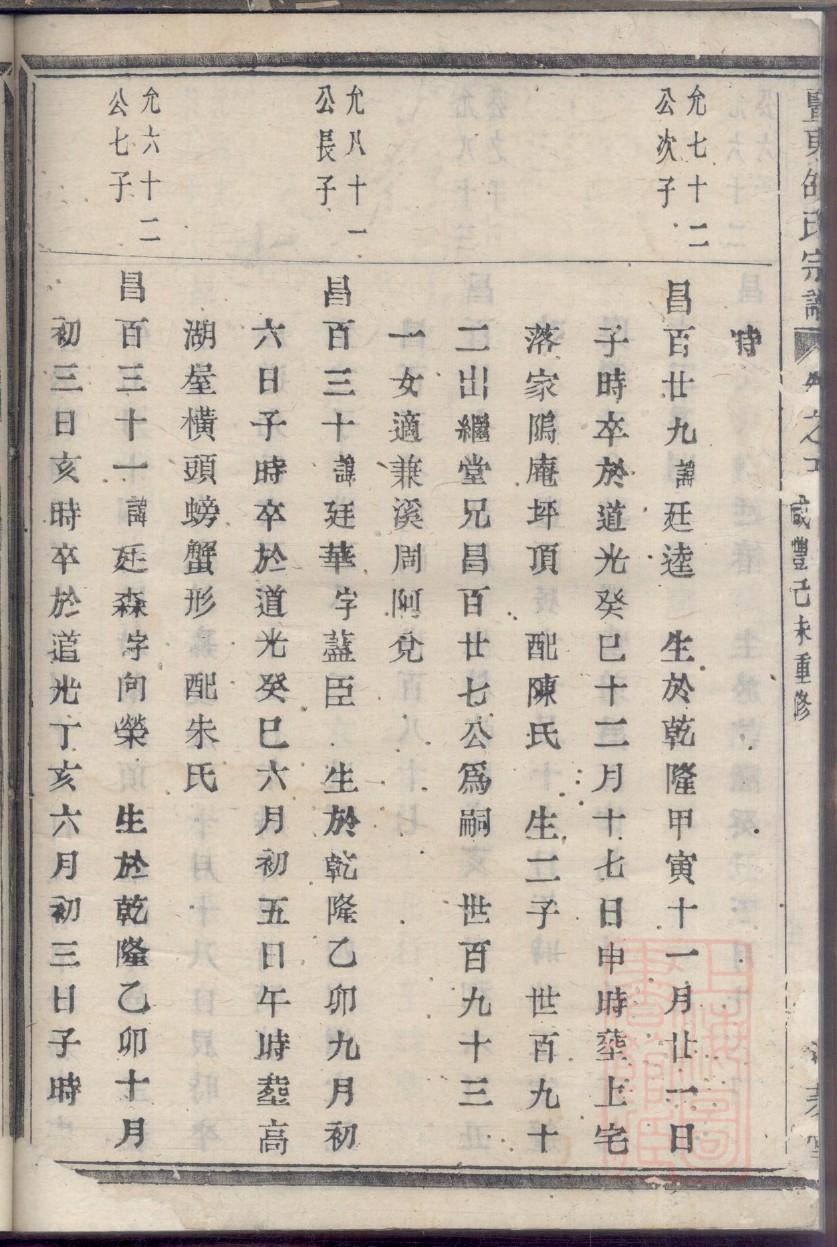 氏宗譜 卷之 咸豐己未重修
時
允七十二
公次子
昌百廿九諱廷逵 生於乾隆甲寅十一月廿一日
子時卒於道光癸巳十二月十七日申時塟上宅
落家隖庵坪頂 配陳氏 生二子 世百九十
二出繼堂兄昌百廿七公爲嗣 世百九十三
一女適兼溪周阿兌
允八十一
公長子
昌百三十諱廷華字藎臣 生於乾隆乙卯九月初
六日子時卒於道光癸巳六月初五日午時塟高
湖屋橫頭螃蟹形 配朱氏
允六十二
公七子
昌百三十一諱廷森字向榮 生於乾隆乙卯十月
初三日亥時卒於道光丁亥六月初三日子時